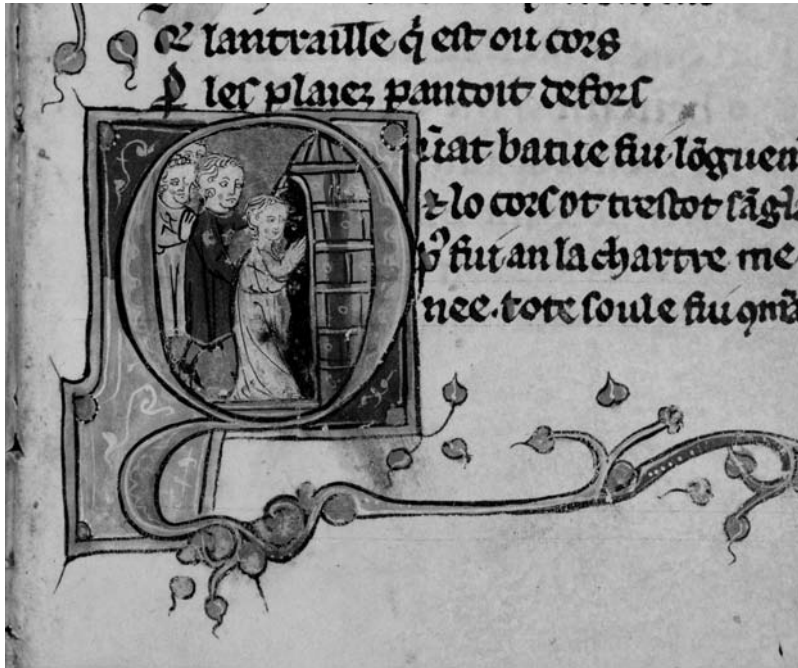 ⁊ lantraille q̃ est ou cors
P̲ les plaiez pandoit defors
Q
batue fiu. lõguem
⁊ lo cors ot trestot sãgla
pꝰ fiu an la chartre me
nee. tote soule fiu